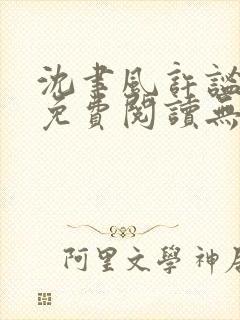 沈書風許謐
免費閱讀無
阿里文學神居